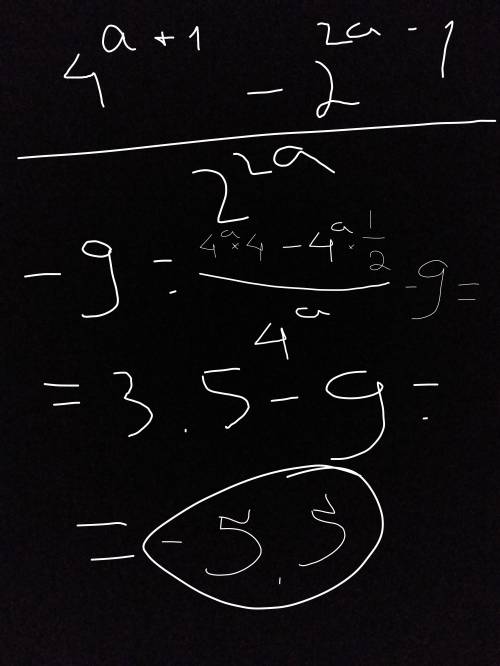 4^(a+1) - 2^(2a-1)
2^(2a)
- 9 = (4^a × 4 - 4^a · 1/2) / 4^a - 9 =
= 3.5 - 9 =
= -5,5